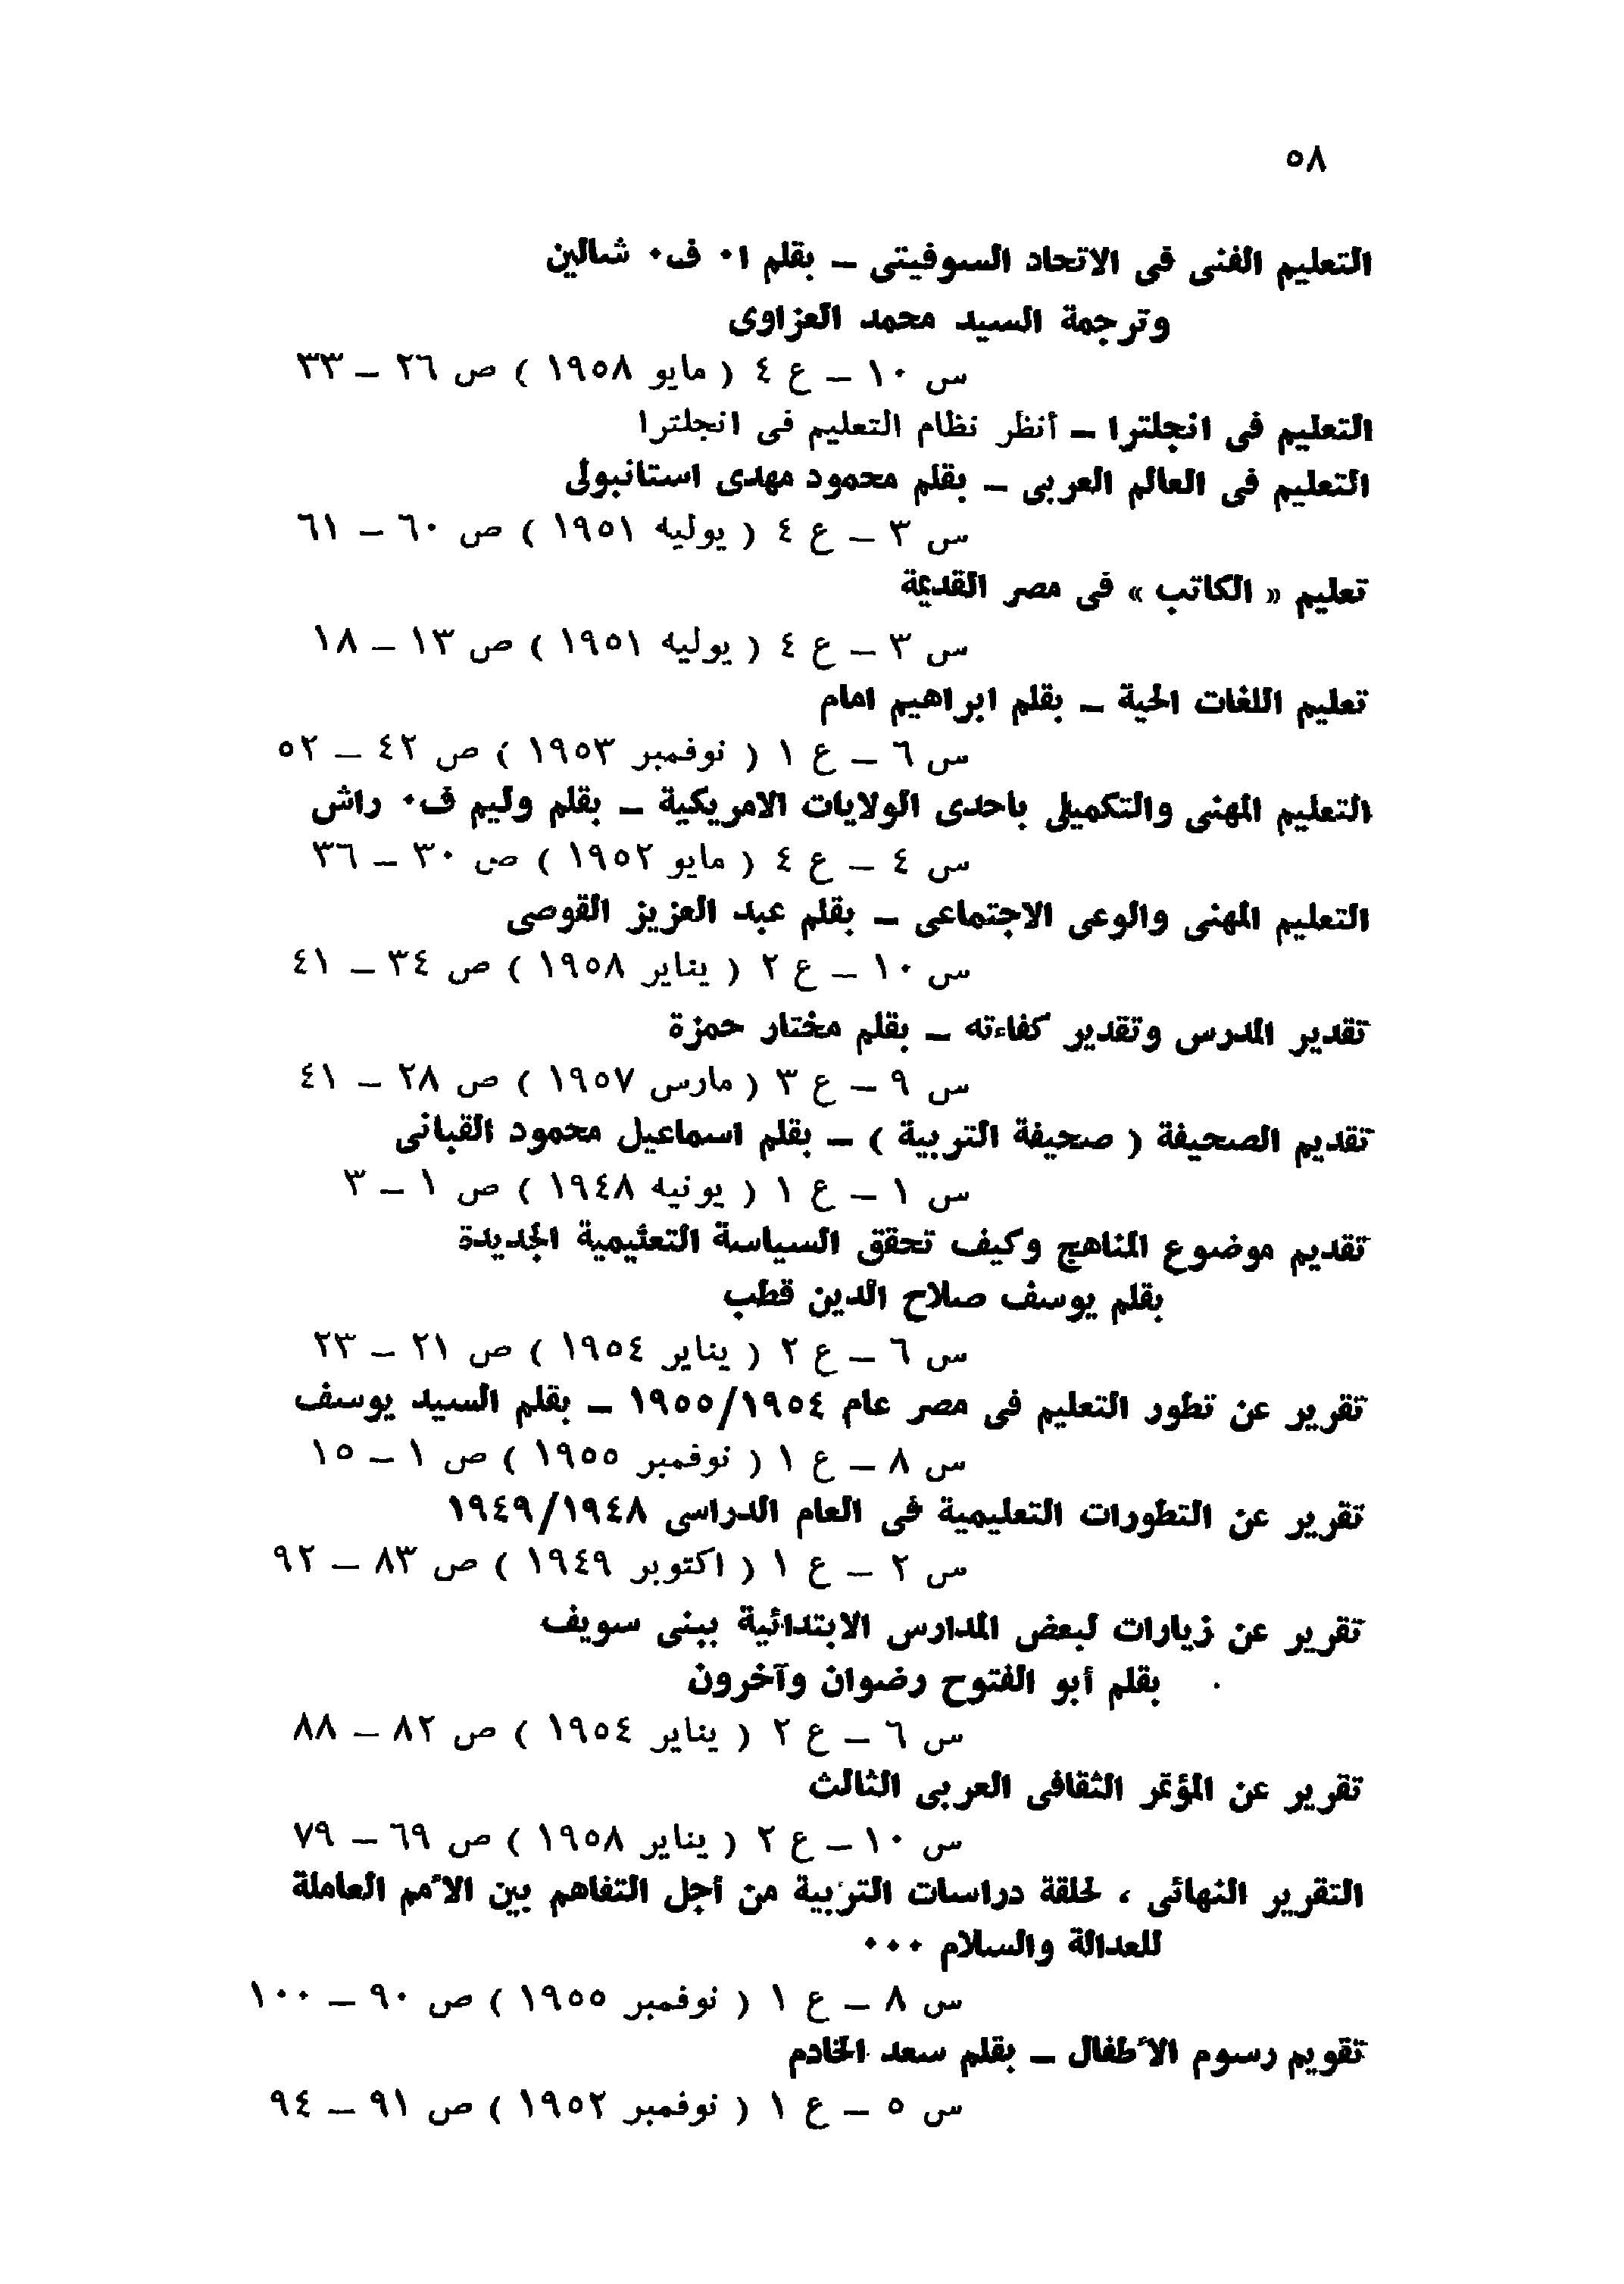 ٥٨
التعليم الفنى فى الاتحاد السوفيتى – بقلم ا٠ ف٠ شالين
وترجمة السيد محمد العزاوى
س ١٠ – ع ٤ ( مايو ١٩٥٨ ) ص ٢٦ – ٣٣
التعليم فى انجلترا – أنظر نظام التعليم فى انجلترا
التعليم فى العالم العربى – بقلم محمود مهدى استانبولى
س ٣ – ع ٤ ( يوليه ١٩٥١ ) ص ٦٠ – ٦١
تعليم « الكاتب » فى مصر القديمة
س ٣ – ع ٤ ( يوليه ١٩٥١ ) ص ١٣ – ١٨
تعليم اللغات الحية – بقلم ابراهيم امام
س ٦ – ع ١ ( نوفمبر ١٩٥٣ ) ص ٤٢ – ٥٢
التعليم المهنى والتكميلى باحدى الولايات الامريكية – بقلم وليم ف٠ راش
س ٤ – ع ٤ ( مايو ١٩٥٢ ) ص ٣٠ – ٣٦
التعليم المهنى والوعى الاجتماعى – بقلم عبد العزيز القوصى
س ١٠ – ع ٢ ( يناير ١٩٥٨ ) ص ٣٤ – ٤١
تقدير المدرس وتقدير كفاءته – بقلم مختار حمزة
س ٩ – ع ٣ ( مارس ١٩٥٧ ) ص ٢٨ – ٤١
تقديم الصحيفة ( صحيفة التربية ) – بقلم اسماعيل محمود القبانى
س ١ – ع ١ ( يونيه ١٩٤٨ ) ص ١ – ٣
تقديم موضوع المناهج وكيف تحقق السياسة التعليمية الجديدة
بقلم يوسف صلاح الدين قطب
س ٦ – ع ٢ ( يناير ١٩٥٤ ) ص ٢١ – ٢٣
تقرير عن تطور التعليم فى مصر عام ١٩٥٥/١٩٥٤ – بقلم السيد يوسف
س ٨ – ع ١ ( نوفمبر ١٩٥٥ ) ص ١ – ١٥
تقرير عن التطورات التعليمية فى العام الدراسى ١٩٤٩/١٩٤٨
س ٢ – ع ١ ( اكتوبر ١٩٤٩ ) ص ٨٣ – ٩٢
تقرير عن زيارات لبعض المدارس الابتدائية ببنى سويف
بقلم أبو الفتوح رضوان وآخرون
س ٦ – ع ٢ ( يناير ١٩٥٤ ) ص ٨٢ – ٨٨
تقرير عن المؤتمر الثقافى العربى الثالث
س ١٠ – ع ٢ ( يناير ١٩٥٨ ) ص ٦٩ – ٧٩
التقرير النهائى ، لحلقة دراسات التربية من أجل التفاهم بين الأمم العاملة
للعدالة والسلام ٠٠٠
س ٨ – ع ١ ( نوفمبر ١٩٥٥ ) ص ٩٠ – ١٠٠
تقويم رسوم الأطفال – بقلم سعد الخادم
س ٥ – ع ١ ( نوفمبر ١٩٥٢ ) ص ٩١ – ٩٤